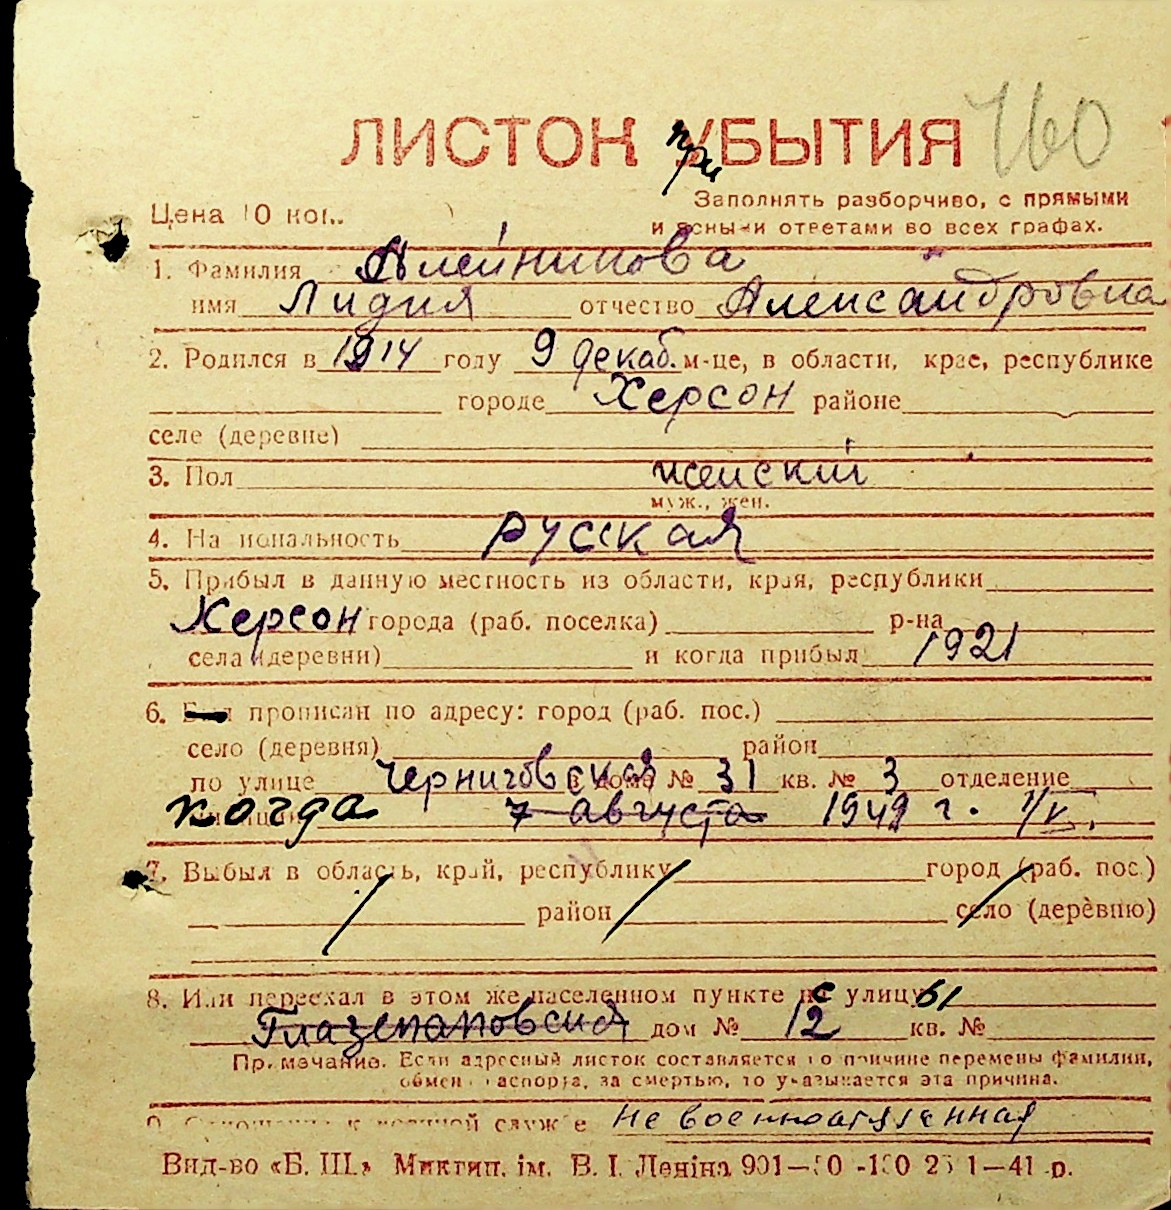 160
ЛИСТОК при УБЫТИЯ
Цена 10 коп.
Заполнять разборчиво, с прямыми
и ясными ответами во всех графах.
1. Фамилия Алейникова
имя Лидия отчество Александровна
2. Родился в 1914 году 9 декаб. м-це, в области, крае, республике
городе Херсон районе
селе (деревне)
3. Пол женский
муж., жен.
4. Национальность русская
5. Прибыл в данную местность из области, края, республики
Херсон города (раб. поселка) р-на
села (деревни) и когда прибыл 1921
6. Был прописан по адресу: город (раб. пос.)
село (деревня) район
по улице Черниговская в доме № 31 кв. № 3 отделение
когда 7 августа 1942 г.
7. Выбыл в область, край, республику город (раб. пос.)
район село (деревню)
8. Или переехал в этом же населенном пункте с улицы
Глазенаповская дом № 12 кв. №
Примечание. Если адресный листок составляется по причине перемены фамилии,
обмена паспорта, за смертью, то указывается эта причина.
9. Отношение к военной службе Не военнообязанная
Вид-во «Б. Ш.» Миктип. ім. В. І. Леніна 901— 1—41 р.